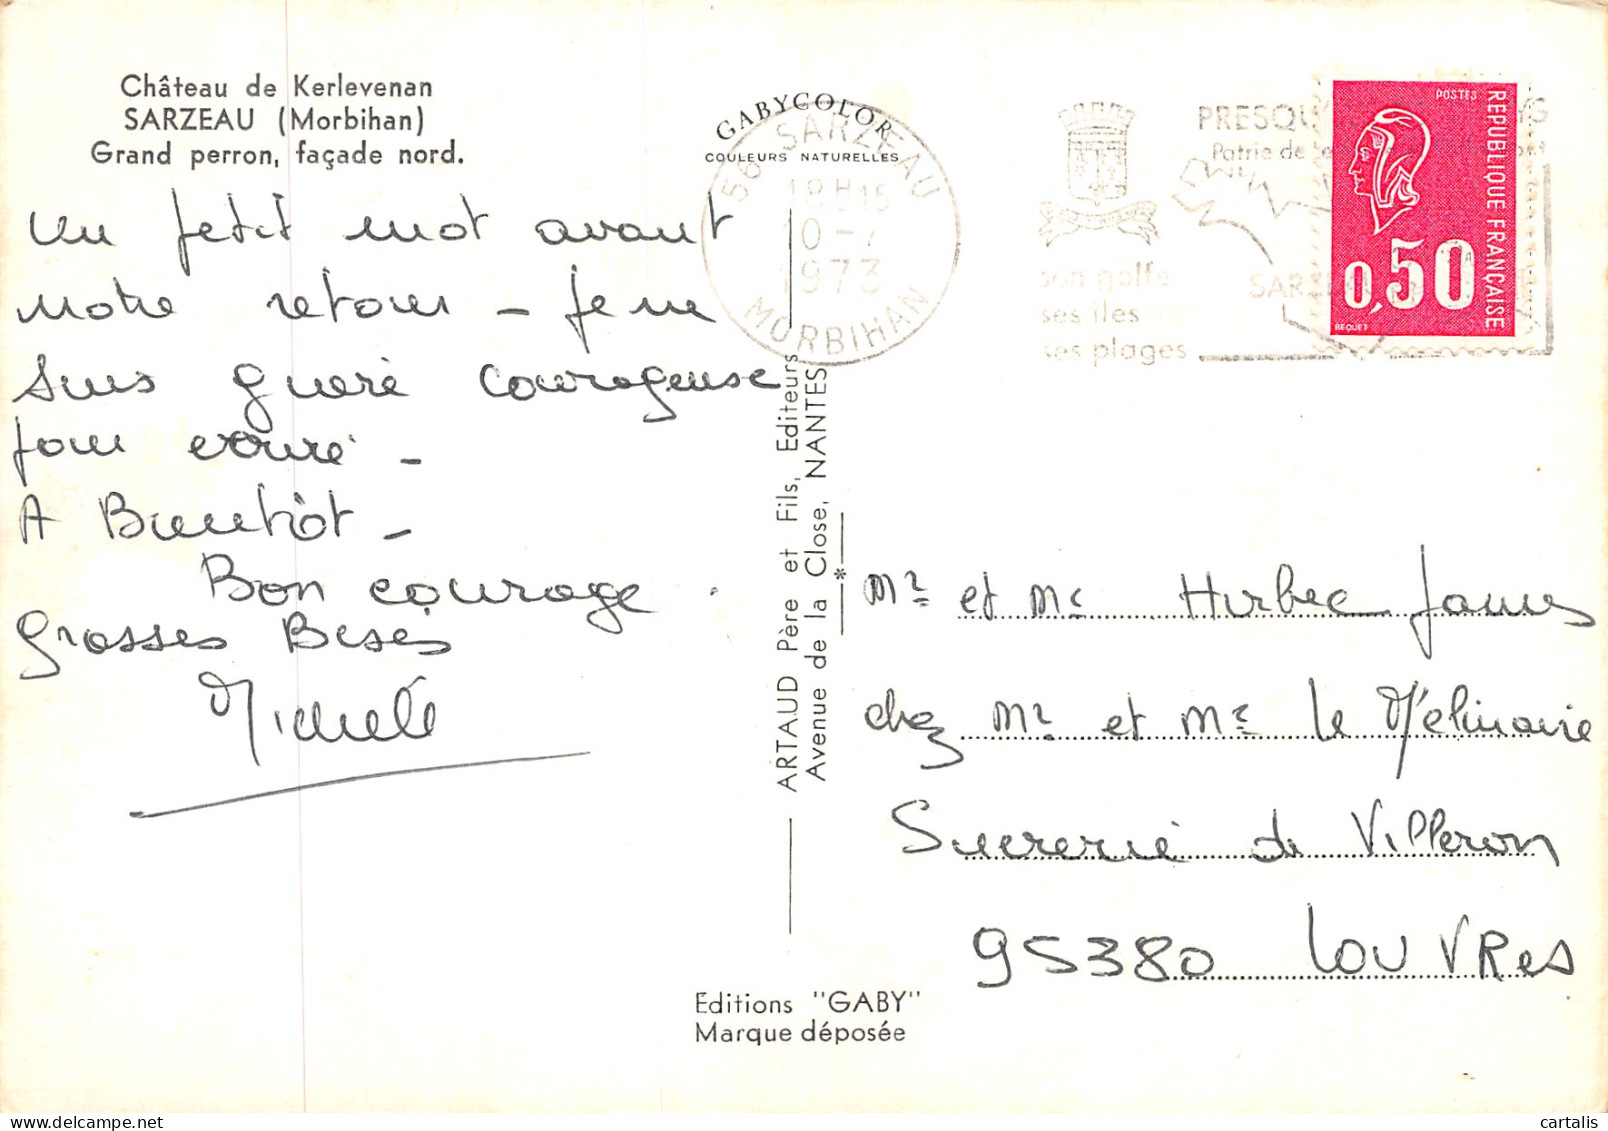 Château de Kerlevenan
SARZEAU (Morbihan)
Grand perron, façade nord.
Un petit mot avant
notre retour – je ne
suis guère courageuse
pour écrire –
A Bientôt –
Bon courage.
Grosses Bises
Michèle
GABYCOLOR
COULEURS NATURELLES
56 SARZEAU
18H15
10-7
1973
MORBIHAN
son golfe
ses îles
ses plages
PRESQU'
Patrie de
SARZEAU
POSTES
REPUBLIQUE FRANÇAISE
0,50
BEQUET
ARTAUD Père et Fils, Editeurs
Avenue de la Close, NANTES
*
Mr et Me Hirbec James
chez Mr et Me le Mélinaire
Sucrerie de Villeron
95380 LOUVRes
Editions "GABY"
Marque déposée
cartalis